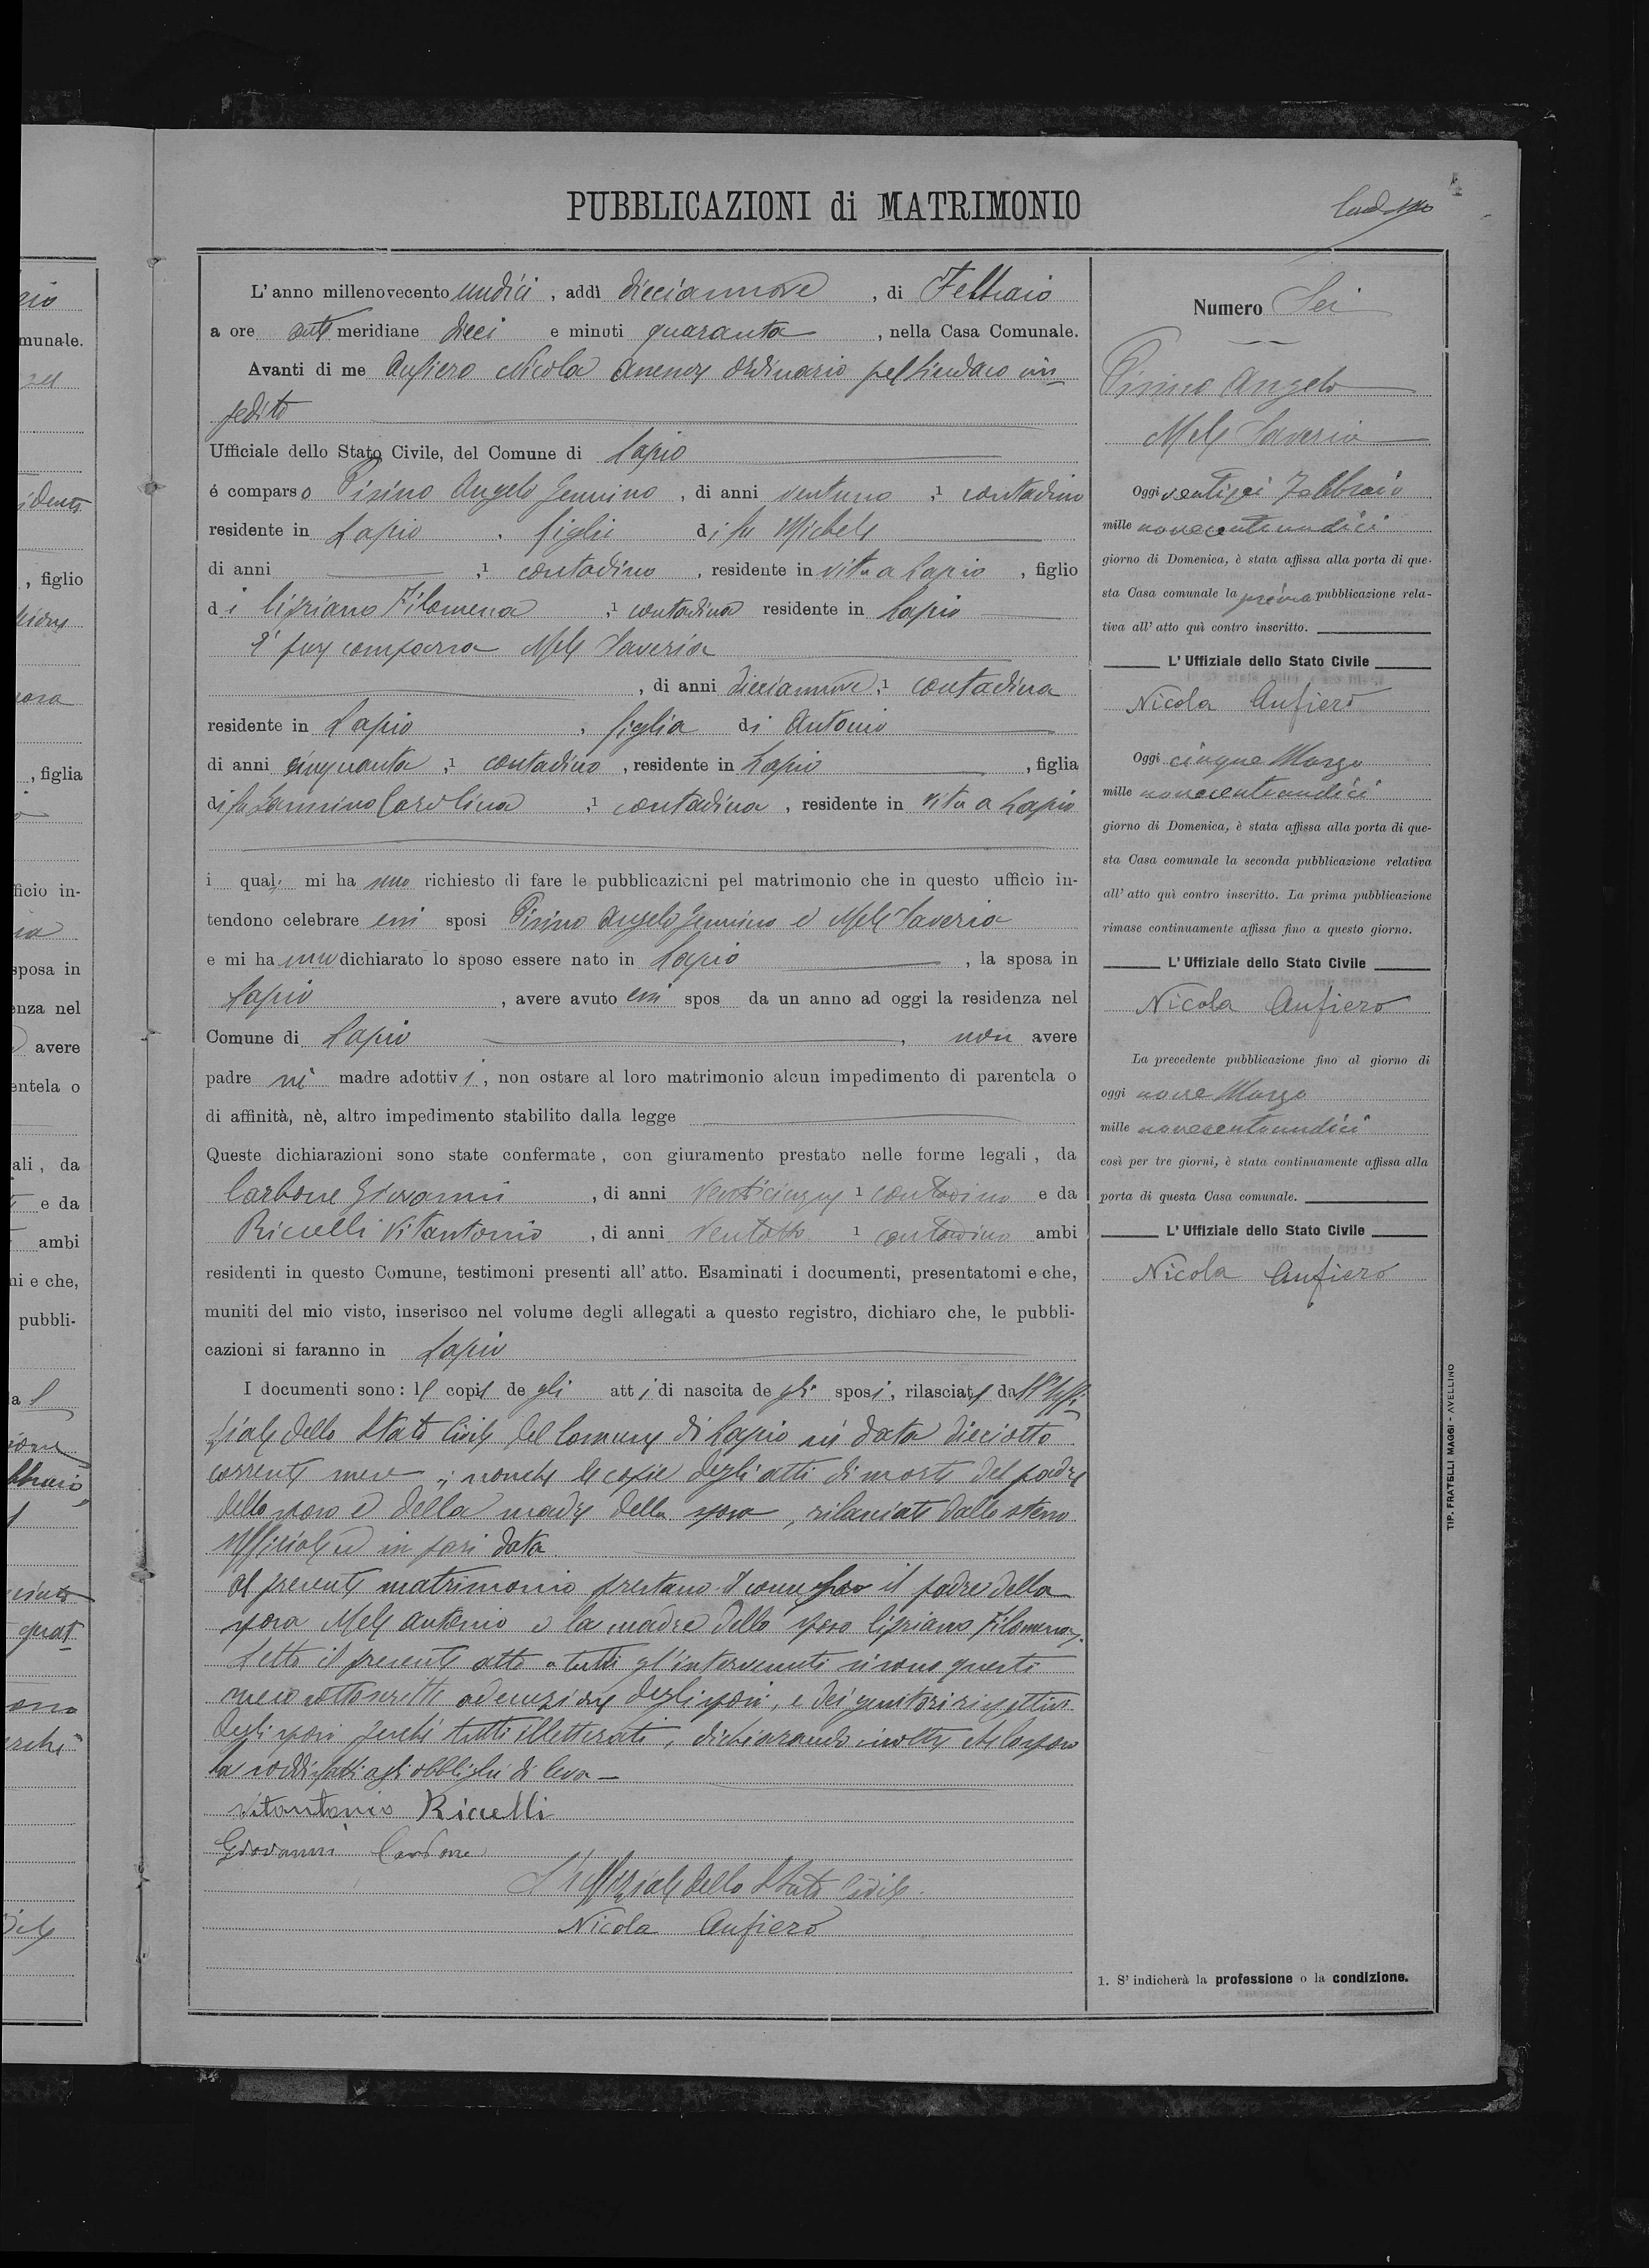 PUBBLICAZIONI di MATRIMONIO
L'anno millenovecento undici, addì diciannove, di Febbraio
a ore anti meridiane dieci e minuti quaranta, nella Casa Comunale.
Avanti di me Anfiero Nicola Assessore Ordinario pel Sindaco im-
pedito
Ufficiale dello Stato Civile, del Comune di Lapio
é comparso Pisino Angelo Gennino, di anni ventuno,¹ contadino
residente in Lapio, figlio di fu Michele
di anni ,¹ contadino, residente in vita a Lapio, figlio
di Cipriano Filomena,¹ contadina residente in Lapio
E' pure comparsa Mele Saveria
, di anni diciannove,¹ contadina
residente in Lapio, figlia di Antonio
di anni cinquanta,¹ contadino, residente in Lapio, figlia
di fu Carolina,¹ contadina, residente in vita a Lapio
i quali mi hanno richiesto di fare le pubblicazioni pel matrimonio che in questo ufficio in-
tendono celebrare essi sposi Pisino Angelo Gennino e Mele Saveria
e mi hanno dichiarato lo sposo essere nato in Lapio, la sposa in
Lapio, avere avuto essi spos da un anno ad oggi la residenza nel
Comune di Lapio, non avere
padre nè madre adottivi, non ostare al loro matrimonio alcun impedimento di parentela o
di affinità, nè, altro impedimento stabilito dalla legge
Queste dichiarazioni sono state confermate, con giuramento prestato nelle forme legali, da
Carbone Giovanni, di anni venticinque ¹ contadino e da
Riccelli Vitantonio, di anni ventotto ¹ contadino ambi
residenti in questo Comune, testimoni presenti all'atto. Esaminati i documenti, presentatomi e che,
muniti del mio visto, inserisco nel volume degli allegati a questo registro, dichiaro che, le pubbli-
cazioni si faranno in Lapio
I documenti sono: le copie degli atti di nascita degli sposi, rilasciate dall'Uffi-
ziale dello Stato Civile del Comune di Lapio in data dieciotto
corrente mese; nonchè le copie degli atti di morte del padre
dello sposo e della madre della sposa, rilasciate dallo stesso
Ufficiale ed in pari data
Al presente matrimonio prestano il consenso il padre della
sposa Mele Antonio e la madre dello sposo Cipriano Filomena.
Letto il presente atto a tutti gl'intervenuti si sono questi
meco sottoscritti ad eccezione degli sposi, e dei genitori rispettivi
degli sposi perchè tutti illetterati, dichiarando inoltre che lo sposo
ha soddisfatti agli obblighi di leva —
Vitantonio Riccelli
Giovanni Carbone
L'Uffiziale dello Stato Civile.
Nicola Anfiero
Numero Sei
Pisino Angelo
Mele Saveria
Oggi ventisei Febbraio
mille novecentoundici
giorno di Domenica, è stata affissa alla porta di que-
sta Casa comunale la prima pubblicazione rela-
tiva all'atto quì contro inscritto.
L'Uffiziale dello Stato Civile
Nicola Anfiero
Oggi cinque Marzo
mille novecentoundici
giorno di Domenica, è stata affissa alla porta di que-
sta Casa comunale la seconda pubblicazione relativa
all'atto quì contro inscritto. La prima pubblicazione
rimase continuamente affissa fino a questo giorno.
L'Uffiziale dello Stato Civile
Nicola Anfiero
La precedente pubblicazione fino al giorno di
oggi nove Marzo
mille novecentoundici
così per tre giorni, è stata continuamente affissa alla
porta di questa Casa comunale.
L'Uffiziale dello Stato Civile
Nicola Anfiero
1. S'indicherà la professione o la condizione.
TIP. FRATELLI MAGGI - AVELLINO